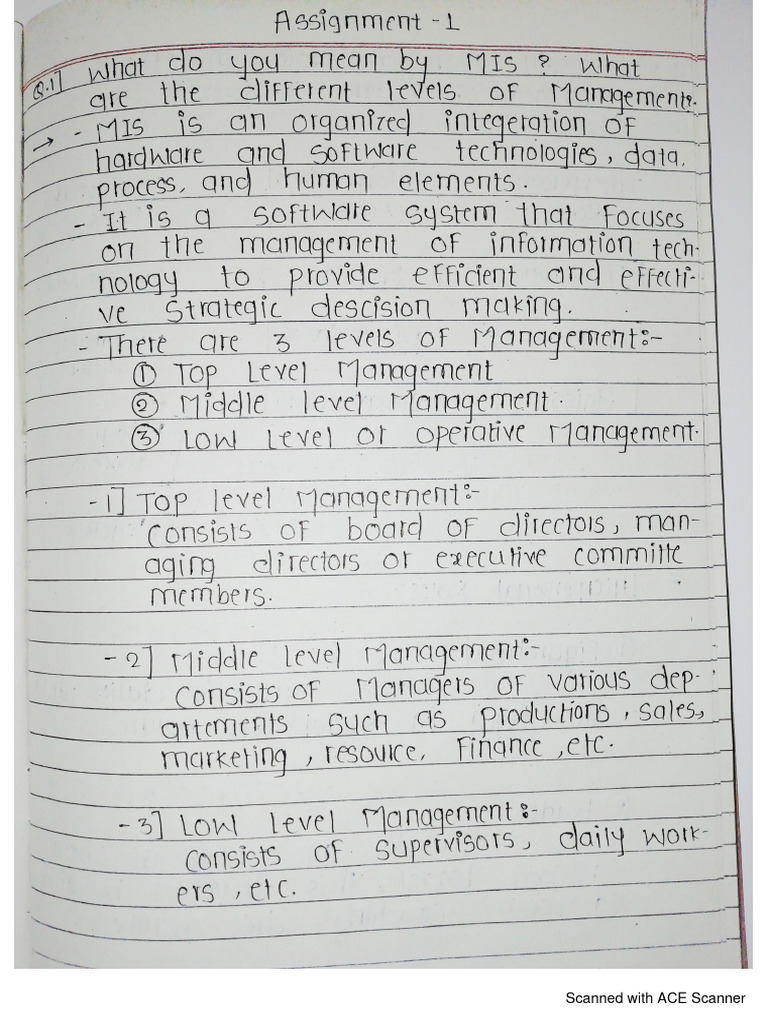 Assignment - 1
Q.1] What do you mean by MIS ? What
are the different levels of Management?.
→ - MIS is an organized integeration of
hardware and software technologies, data,
process, and human elements.
- It is a software system that focuses
on the management of information tech-
nology to provide efficient and effecti-
ve strategic descision making.
- There are 3 levels of Management:-
① Top Level Management
② Middle level Management.
③ Low Level or operative Management.
-1] Top level Management:-
Consists of board of directors, man-
aging directors or executive committe
members.
-2] Middle Level Management:-
Consists of Managers of various dep-
artements such as productions, sales,
marketing, resource, Finance, etc.
-3] Low Level Management:-
Consists of supervisors, daily work-
ers, etc.
Scanned with ACE Scanner